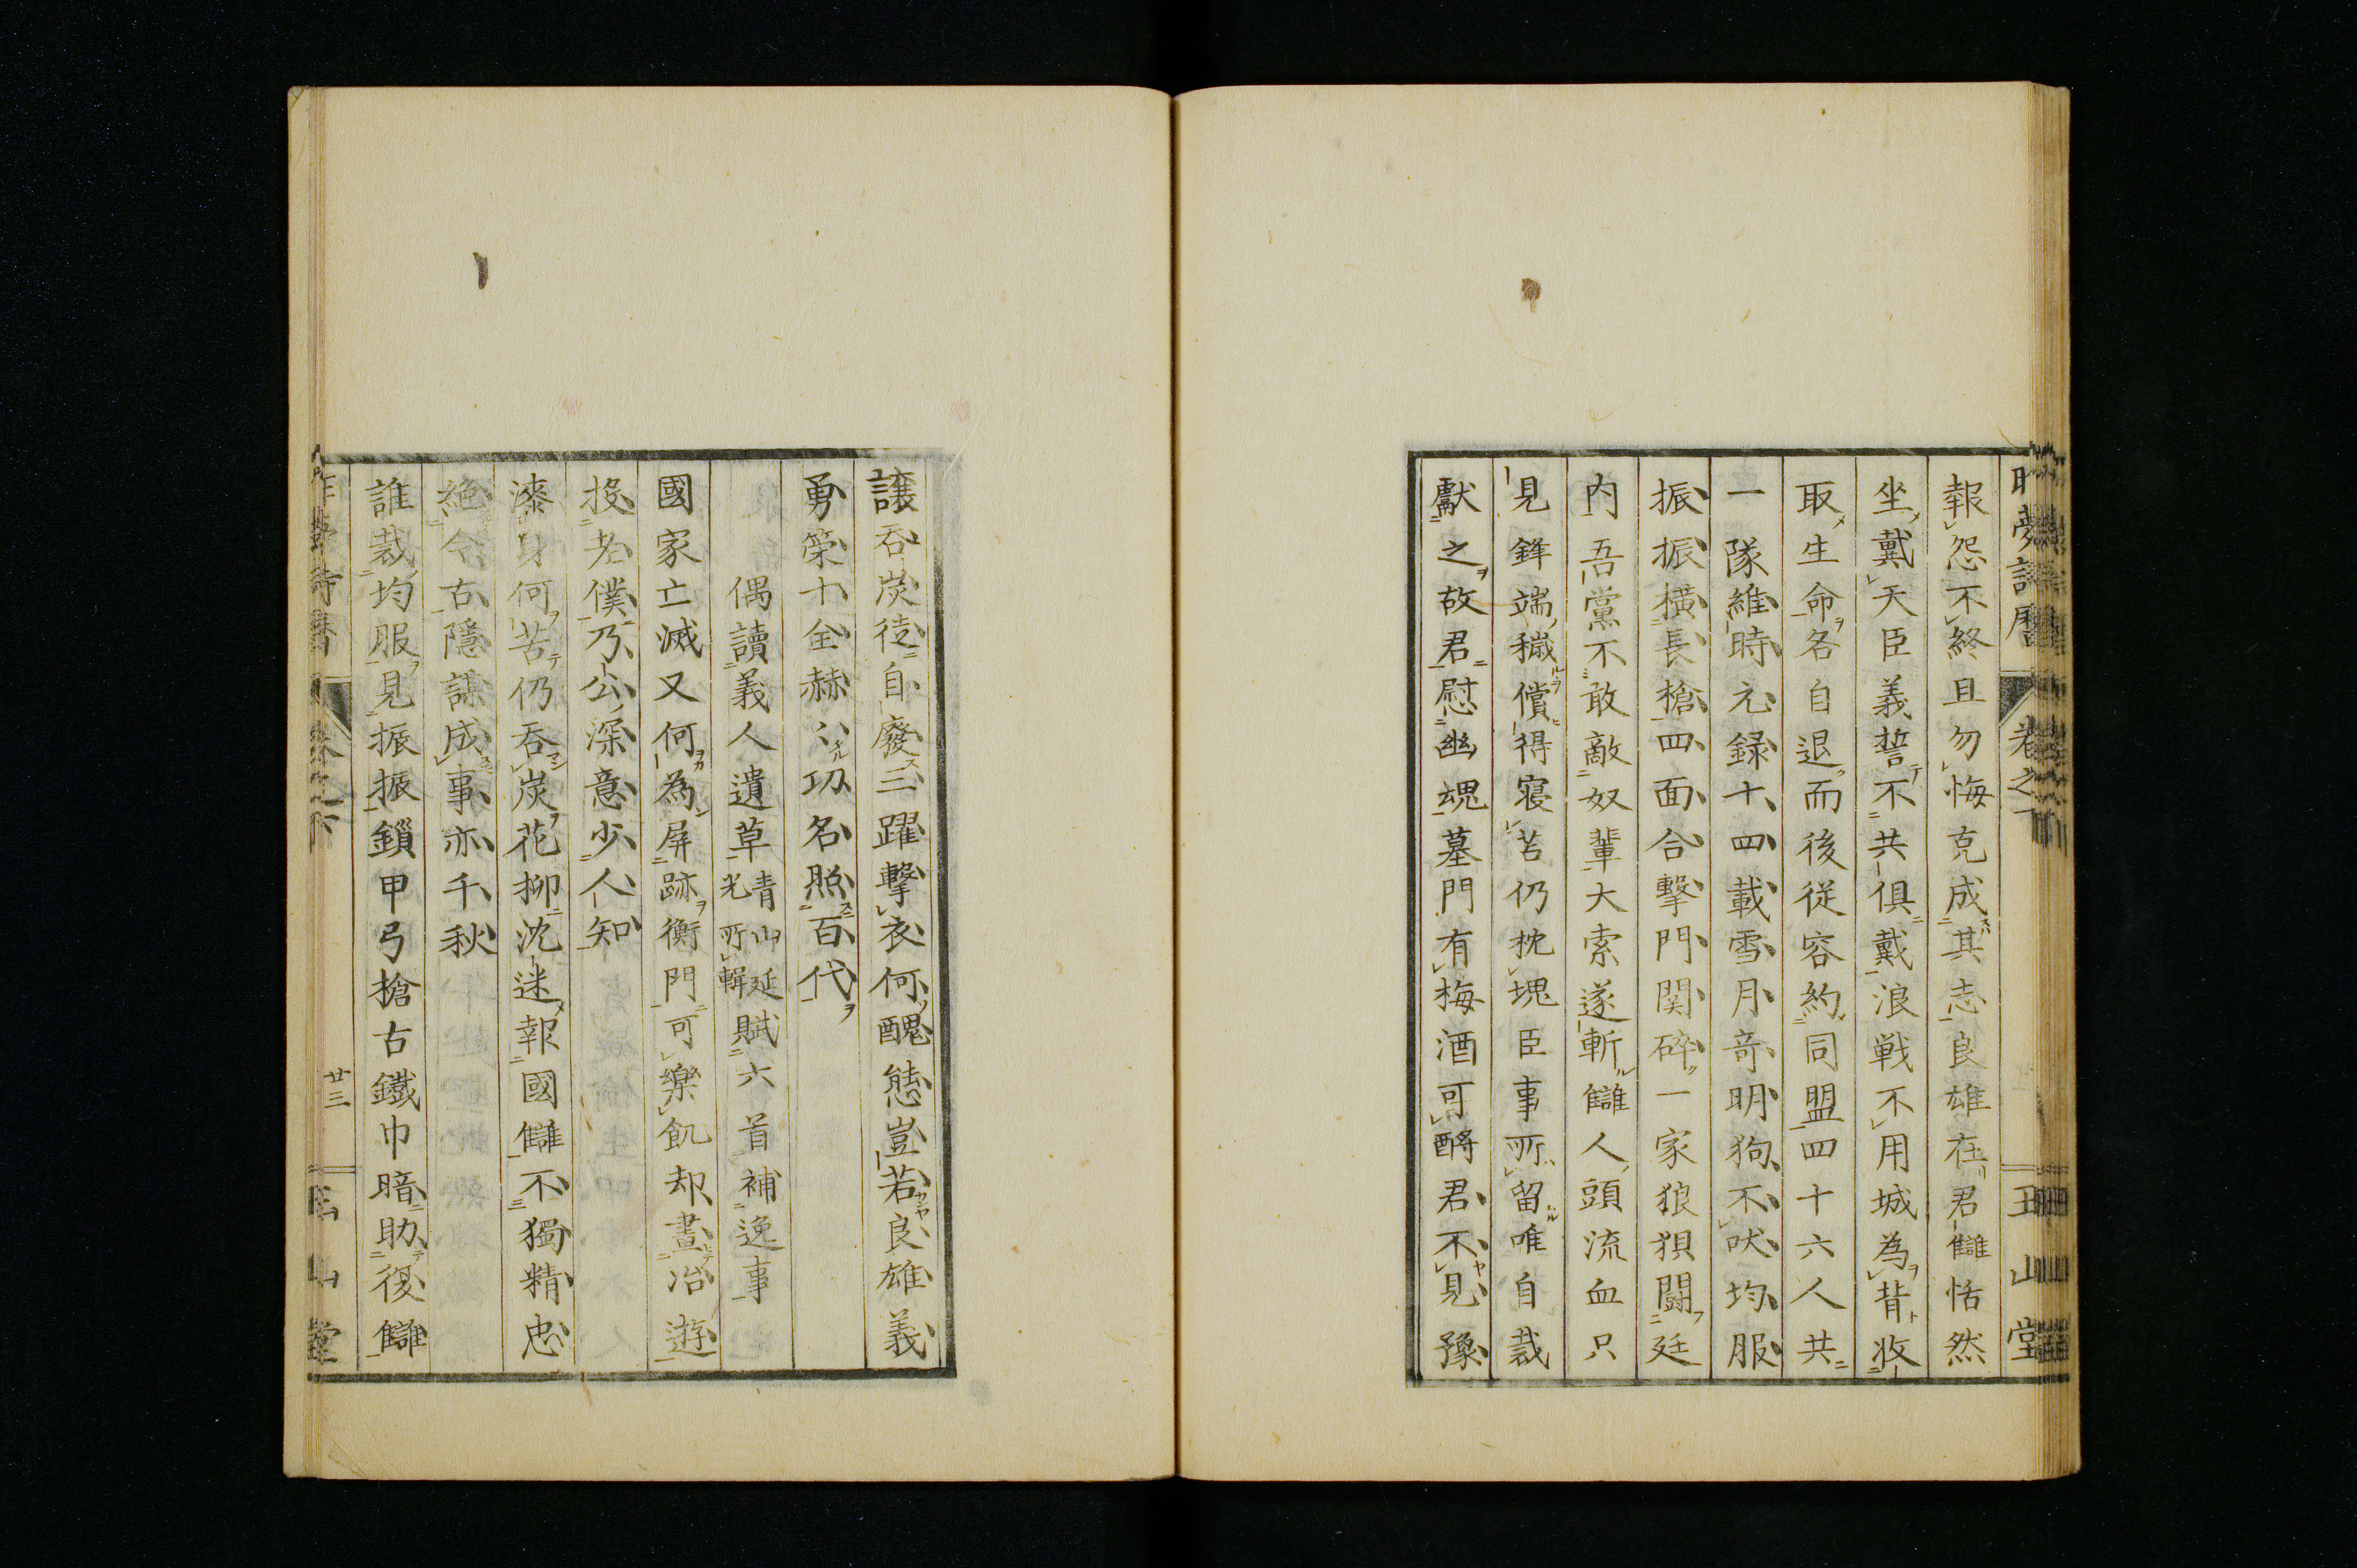 報怨不終且勿悔克成其志良雄在君讎恬然
坐戴天臣義誓不共俱戴浪戦不用城為背收
取生命各自退而後従容約同盟四十六人共
一隊維時元録十四載雪月奇明狗不吠均服
振振横長槍四面合撃門関碎一家狼狽闘廷
内吾黨不敢敵奴輩大索遂斬讎人頭流血只
見鋒端穢償得寝苫仍枕塊臣事所留唯自裁
獻之故君慰幽塊墓門有梅酒可酹君不見豫
讓呑炭徒自廢三躍撃衣何醜態豈若良雄義
勇策十全赫々功名照百代
偶讀義人遺草青山延光所輯賦六首補逸事
國家亡滅又何為屏跡衡門可樂飢却晝冶遊
投老僕乃公深意少人知
漆身何苦仍呑炭花柳沈迷報國讎不獨精忠
絶今古隱謀成事亦千秋
誰裁均服見振振鎻甲弓槍古鐵巾暗助復讎
廿三